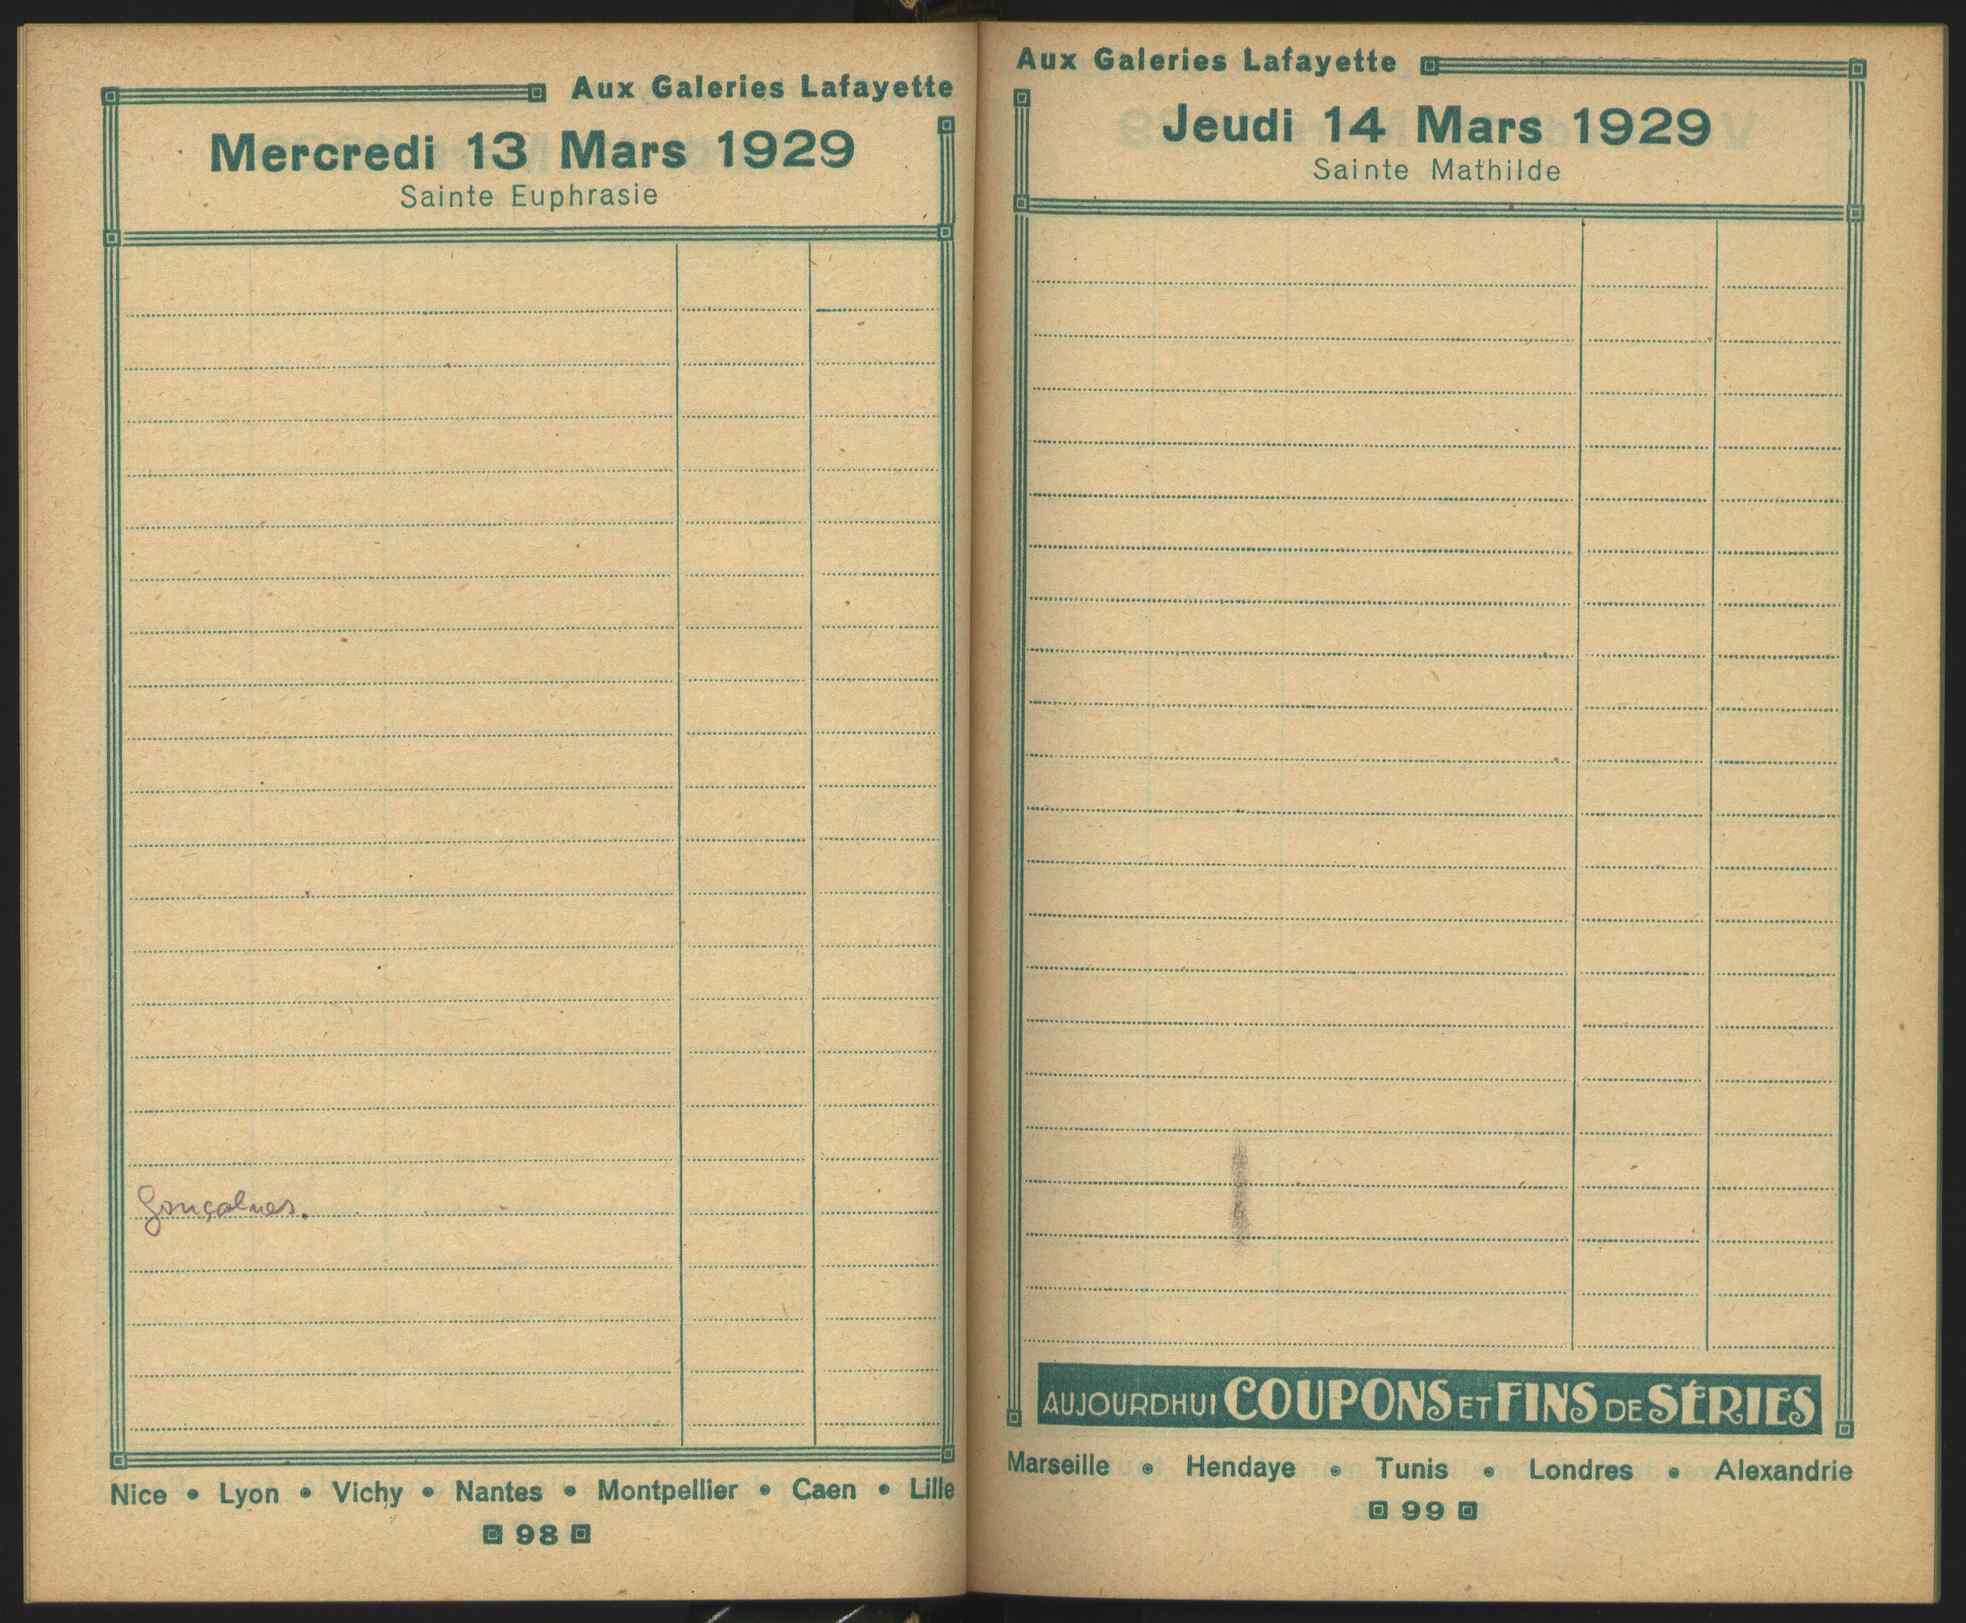 Aux Galeries Lafayette
Mercredi 13 Mars 1929
Sainte Euphrasie
Gonçalves.
Nice • Lyon • Vichy • Nantes • Montpellier • Caen • Lille
98
Aux Galeries Lafayette
Jeudi 14 Mars 1929
Sainte Mathilde
AUJOURDHUI COUPONS ET FINS DE SÉRIES
Marseille • Hendaye • Tunis • Londres • Alexandrie
99